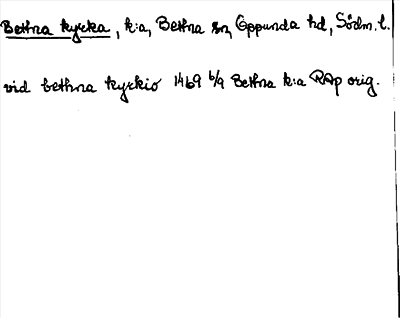 Bethna kyrka, k:a, Bethna sn, Oppunda hd, Södm. l.
vid bethna kyrkio 1469 6/9 Bethna k:a RAp orig.